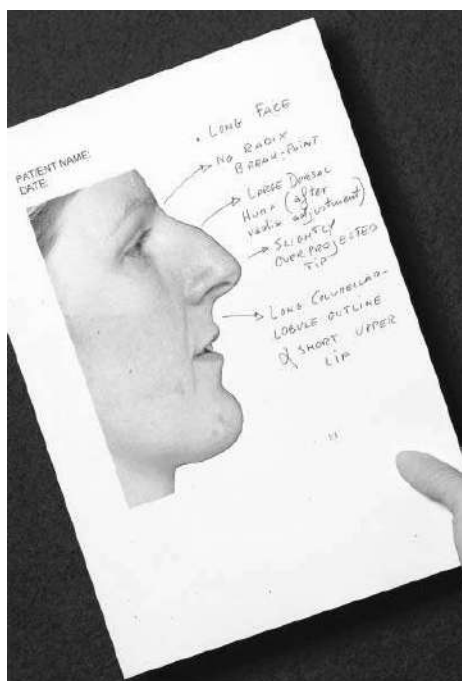 PATIENT NAME:
DATE:
• LONG FACE
NO RADIX
BREAK-POINT
LARGE DORSAL
HUMP (after
radix adjustment)
SLIGHTLY
OVERPROJECTED
TIP
LONG COLUMELLAR-
LOBULE OUTLINE
& SHORT UPPER
LIP